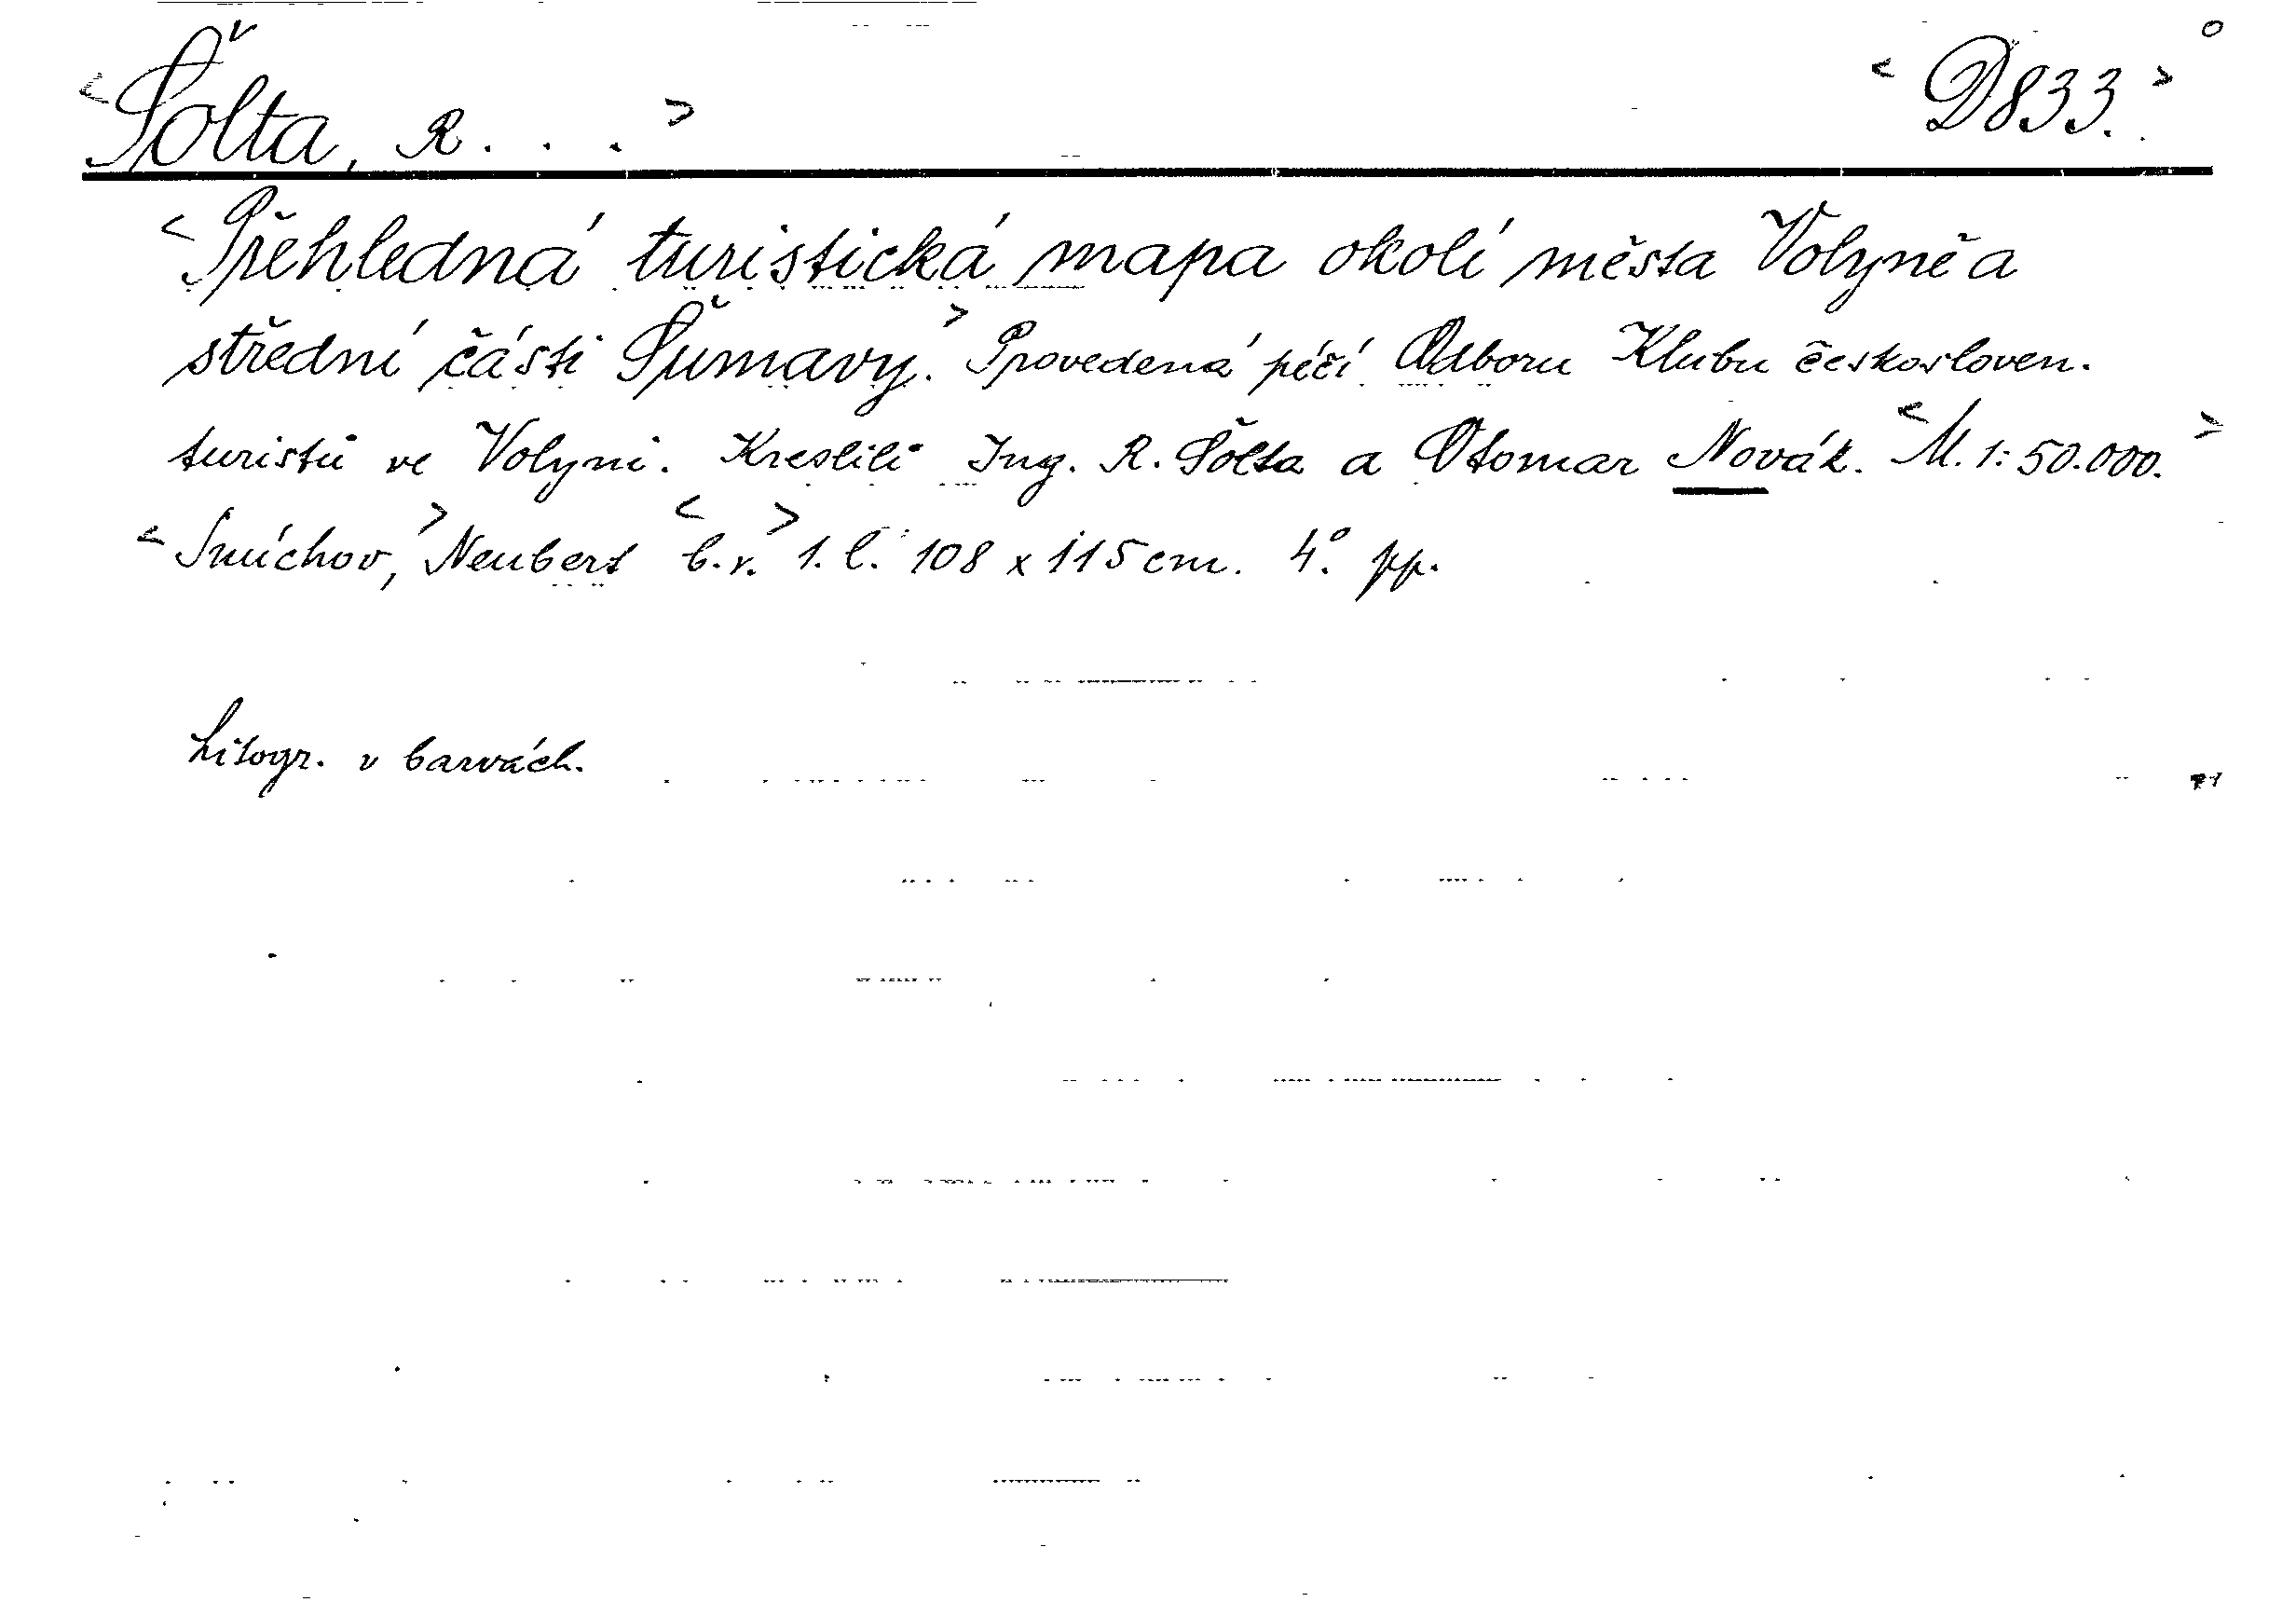 <Šolta, R. . . > <D833.>
<Přehledná turistická mapa okolí města Volyně a
střední části Šumavy.> Provedená péčí Odboru Klubu českosloven.
turistů ve Volyni. Kreslili Ing. R. Šolta a Otomar Novák. <M. 1:50.000.>
<Smíchov,> Neubert <b.r.> 1. l. 108 x 115 cm. 4°. pp.
Litogr. v barvách.